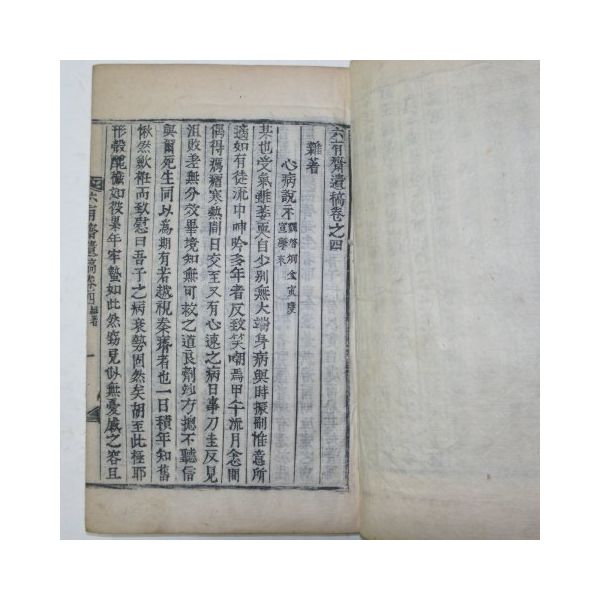 六有齋遺稿卷之四
雜著
心病說示
某也受氣雖甚[...]自少別無大端身病與時振副惟意所
適如有徒流中呻吟多年者反致笑嘲焉甲午流月念間
偶得癘[...]寒熱間日交至又有心[...]之病日事刀圭反見
沮敗差無分效畢境知無可救之道良劑妙方摠不聽信
與爾死生同以爲期有若越視秦瘠者也一日積年知舊
愀然歛袵而致慰曰吾子之病衰勢固然矣胡至此極耶
形殼[...]如役累年牢蟄如此然竊見似無憂感之容且
六有齋遺稿 卷四 雜著 一